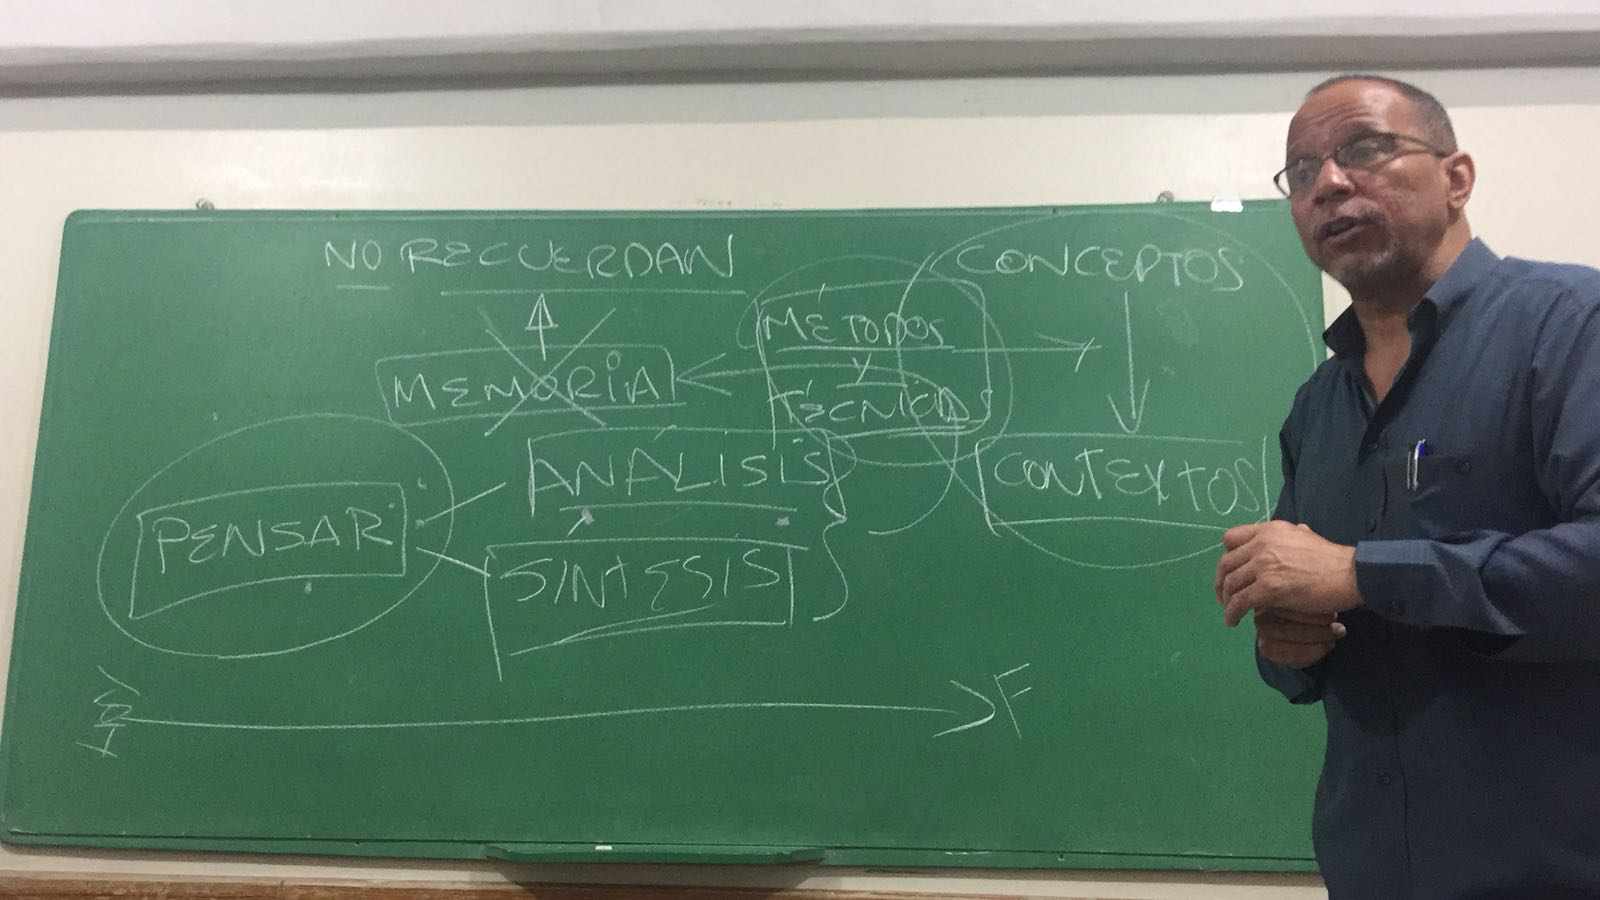 NO RECUERDAN
CONCEPTOS
MÉTODOS
Y
TÉCNICAS
MEMORIA
ANÁLISIS
CONTEXTOS
PENSAR
SÍNTESIS
F